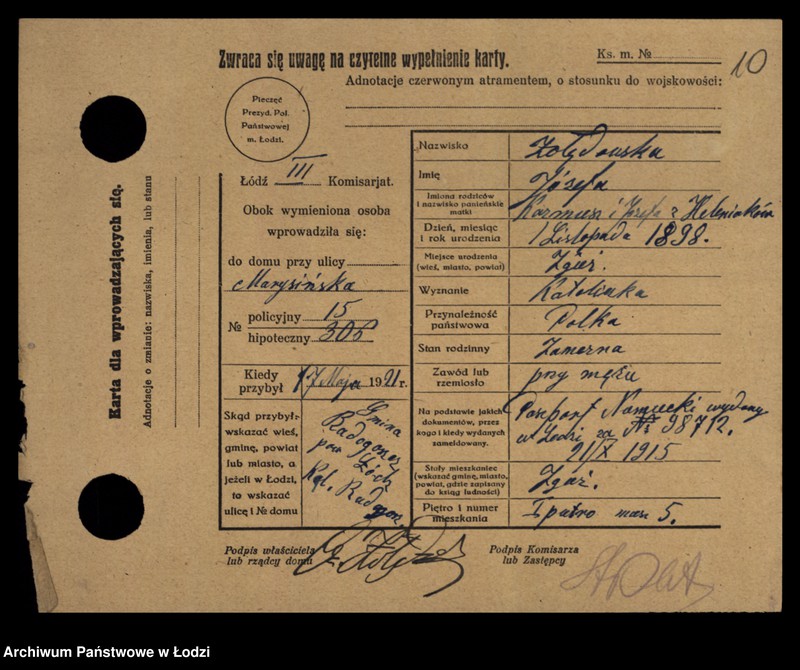 Zwraca się uwagę na czytelne wypełnienie karty.
Ks. m. №
10
Adnotacje czerwonym atramentem, o stosunku do wojskowości:
Karta dla wprowadzających się.
Adnotacje o zmianie: nazwiska, imienia, lub stanu
Pieczęć
Prezyd. Pol.
Państwowej
m. Łodzi.
Łódź III Komisarjat.
Obok wymieniona osoba
wprowadziła się:
do domu przy ulicy
Marysińska
№
policyjny 15
hipoteczny 306
Kiedy
przybył 17 Maja 1921 r.
Skąd przybył-
wskazać wieś,
gminę, powiat
lub miasto, a
jeżeli w Łodzi,
to wskazać
ulicę i № domu
Gmina
Radogoszcz
pow Łódź
Radogoszcz
Nazwisko Żołędowska
Imię Józefa
Imiona rodziców
i nazwisko panieńskie
matki
Kazmiesz i Józefa z Heleniaków
Dzień, miesiąc
i rok urodzenia
1 Listopada 1898.
Miejsce urodzenia
(wieś, miasto, powiat)
Zgież.
Wyznanie Katolicka
Przynależność
państwowa
Polka
Stan rodzinny Zamężna
Zawód lub
rzemiosło
przy mężu
Na podstawie jakich
dokumentów, przez
kogo i kiedy wydanych
zameldowany.
Paszport Niemiecki wydany
w Łodzi za № 98712.
1915
Stały mieszkaniec
(wskazać gminę, miasto,
powiat, gdzie zapisany
do ksiąg ludności)
Zgież.
Piętro i numer
mieszkania
I piętro 5.
Podpis właściciela
lub rządcy domu
Podpis Komisarza
lub Zastępcy
Archiwum Państwowe w Łodzi